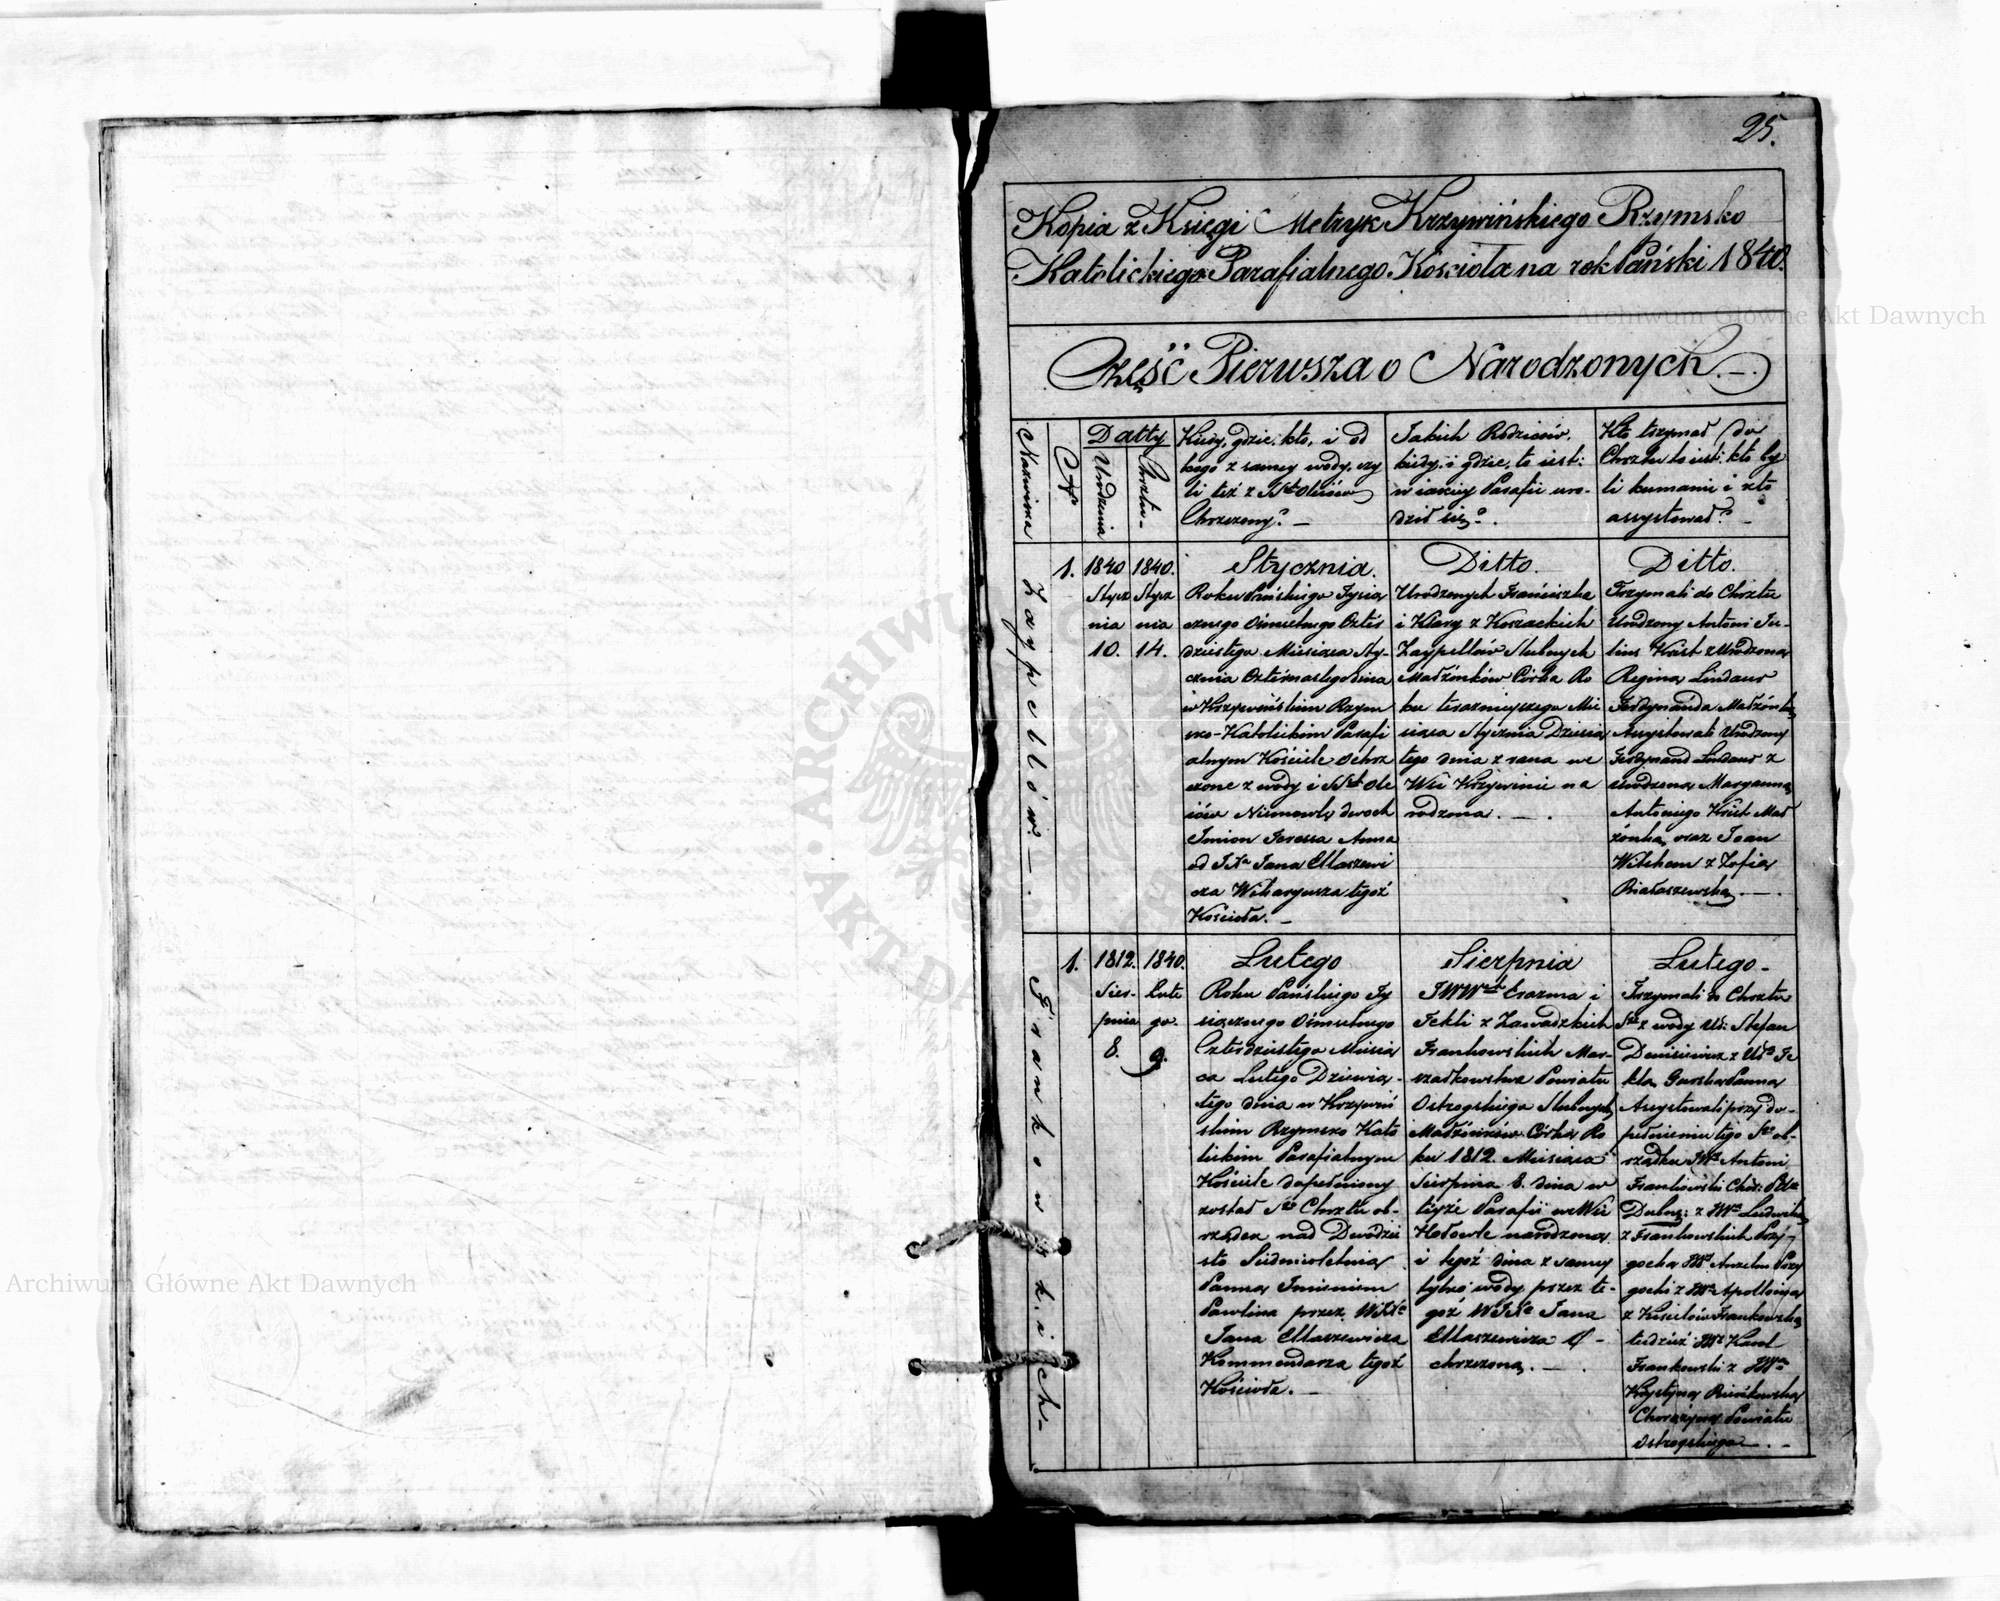 25.
Kopia z Księgi Metryk Krzywińskiego Rzymsko
Katolickiego Parafialnego Kościoła na rok Pański 1840.
Część Pierwsza o Narodzonych.
Nazwiska
N
Datty
Urodzenia
Chrztu
Kiedy, gdzie, kto, i od
kogo z samey wody, czy
li też z Olejów
Chrzczony? –
Jakich Rodziców,
kiedy, i gdzie, to iest:
w iakiey Parafii uro-
dził się?
Kto trzymał do
Chrztu to iest: kto by
li kumami i kto
assystował? –
Zaypellów –
1.
1840
Stycz
nia
10.
1840.
Stycz
nia
14.
Stycznia.
Roku Pańskiego Tysią
cznego Ośmsetnego Czter
dziestego Miesiąca Sty-
cznia Czternastego dnia
w Krzywińskim Rzym
sko-Katolickim Parafi
alnym Kościele Ochrz
czone z wody i Ole
iów Niemowle dwoch
Imion Teressa Anna
od Jana Eliaszewi
cza Wikaryusza tegoż
Kościoła. –
Ditto.
Urodzonych Franciszka
i Klary z Kozackich
Zaypellów Slubnych
Małżonków Córka Ro
ku teraznieyszego Mie
siąca Stycznia Dziesią
tego dnia z rana we
Wsi Krzywinie na
rodzona. – .
Ditto.
Trzymali do Chrztu
Urodzony Antoni Ju-
lius Krist z Urodzoną
Reginą Lindauer
Ferdynanda Małżonką
Assystowali Urodzony
Ferdynand Lindauer z
Urodzoną Maryanną
Antoniego Krist Mał
żonką, oraz Joan
Wilchem z Zofią
Białaszewską. –
Frankowskich –
1.
1812.
Sier-
pnia
8.
1840.
Lute
go.
9.
Lutego
Roku Pańskiego Ty
siącznego Ośmsetnego
Czterdziestego Miesią
ca Lutego Dziewią-
tego dnia w Krzywiń
skim Rzymsko Kato
lickim Parafialnym
Kościele dopełniony
został Chrztu ob-
rządek nad Dwódzie
sto Siedmioletnią
Panną Imieniem
Pawliną przez
Jana Eliaszewicza
Kommendarza tegoż
Kościoła. –
Sierpnia
Erazma i
Tekli z Zawadzkich
Frankowskich Mar-
szałkowstwa Powiatu
Ostrogskiego Slubnych
Małżonków Córka Ro
ku 1812. Miesiąca
Sierpnia 8. dnia w
teyże Parafii we Wsi
Hołowle narodzona
i tegoż dnia z samey
tylko wody przez te-
goż Jana
Eliaszewicza
chrzczona. –
Lutego –
Trzymali do Chrztu
z wody Ur: Stefan
Denisiewicz z Te
klą Gurską Panną
Assystowali przy do-
pełnieniu tego ob-
rządku Antoni
Frankowski
z Ludwiką
z Frankowskich Przy-
gocką Anzelm Przy
gocki z Apollonią
z Kisielów Frankowską
tudzież Karol
Frankowski z
Krystyną
Chorążyną Powiatu
Ostrogskiego –
Archiwum Główne Akt Dawnych
Archiwum Główne Akt Dawnych